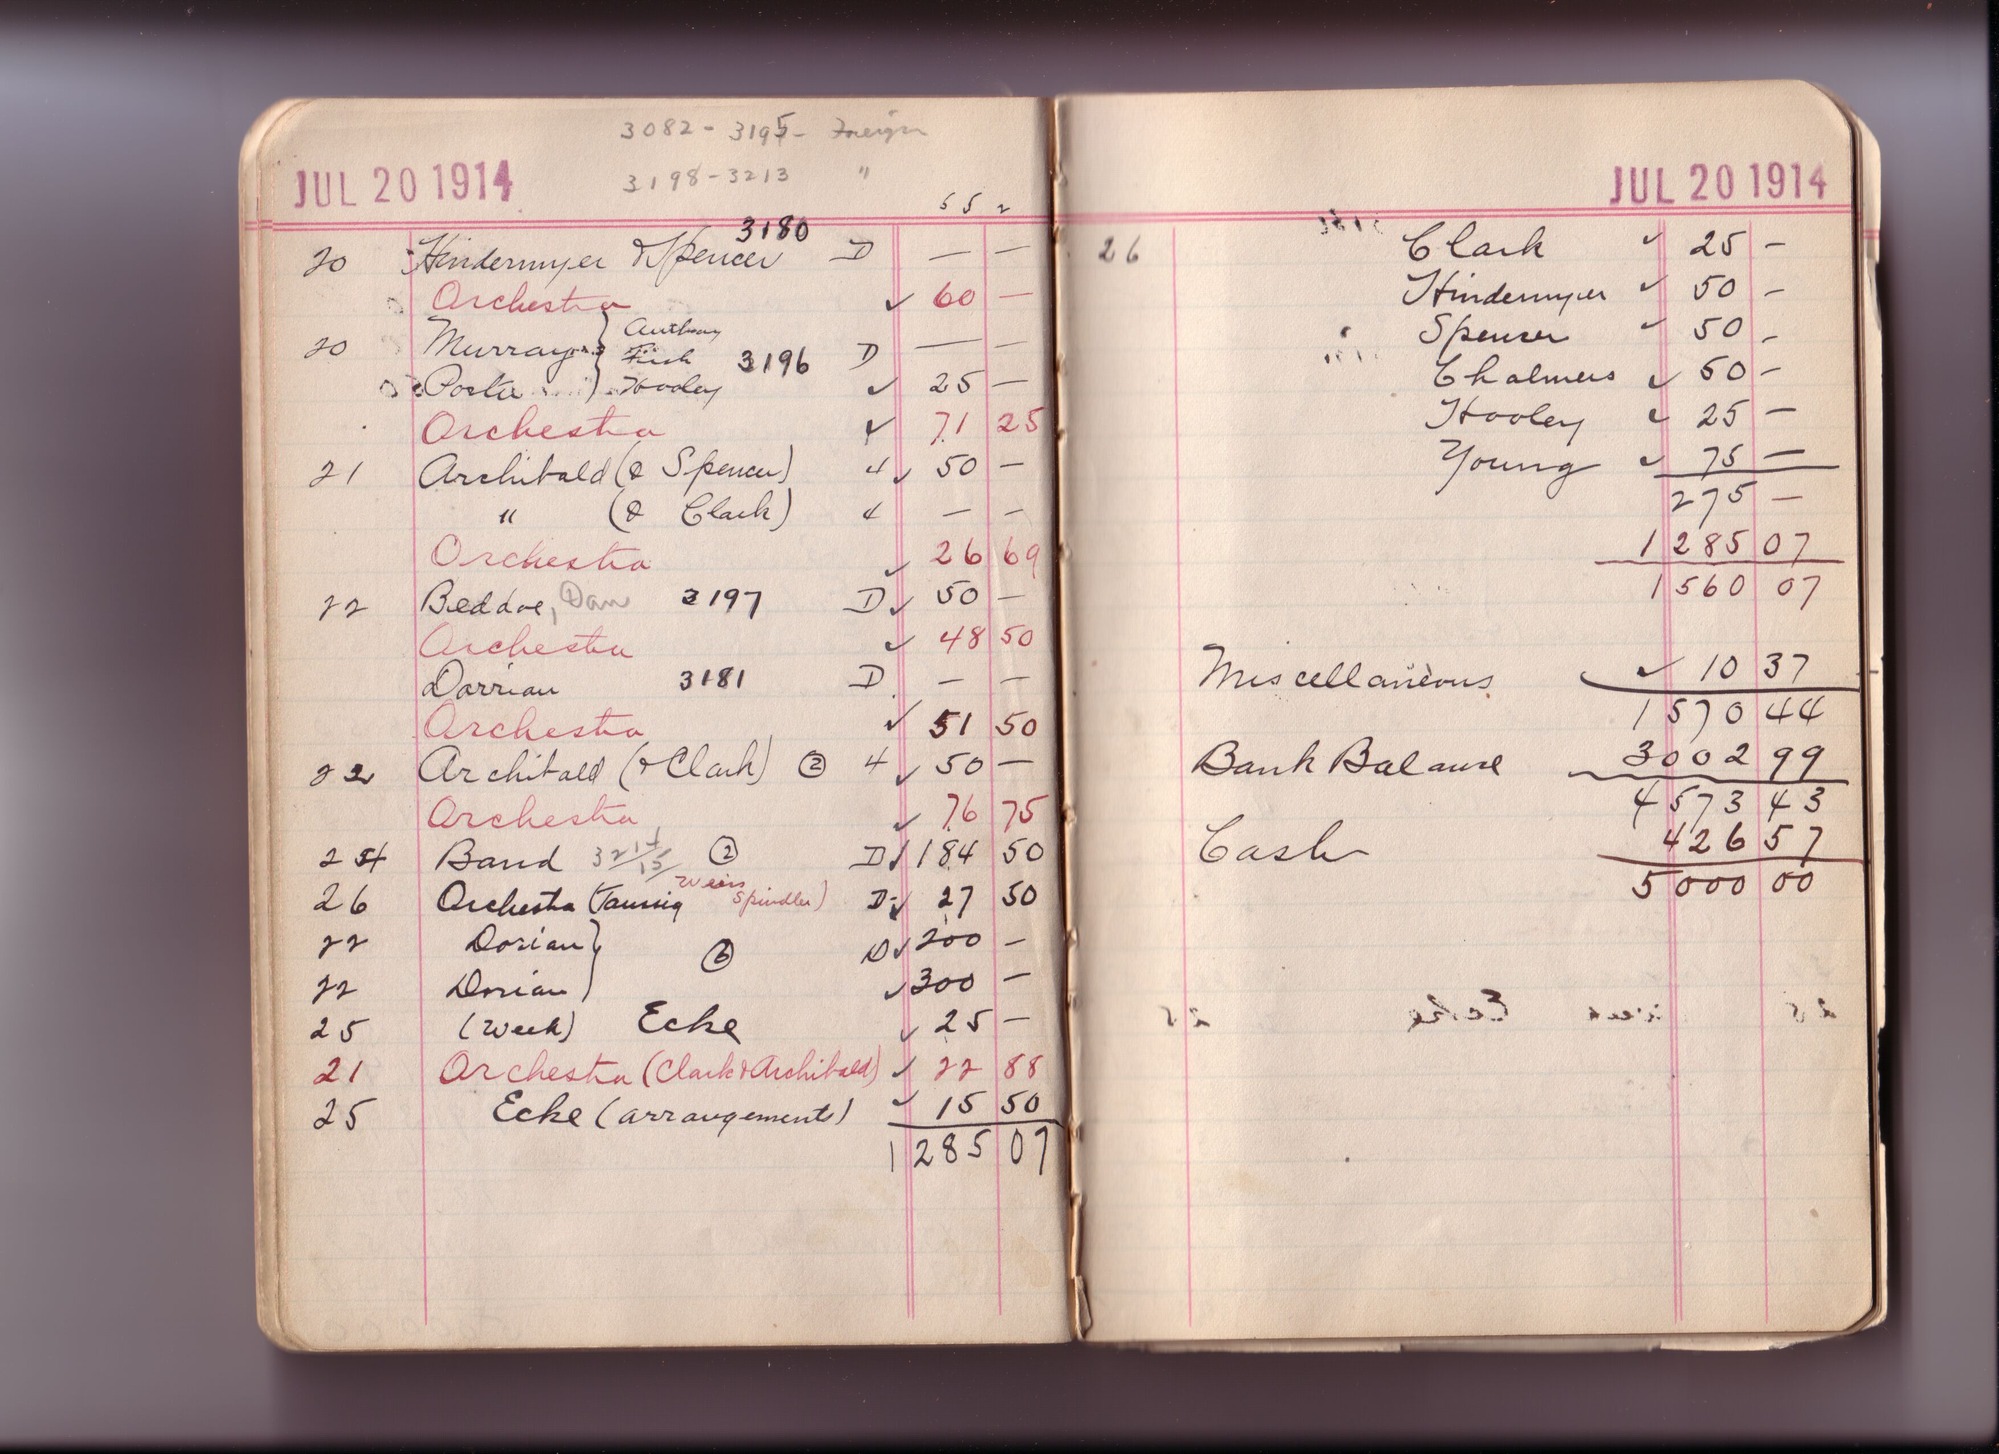 3082 - 3195 - Foreign
JUL 20 1914
3198 - 3213 "
5 5 2
20 Hindermyer & Spencer 3180 D — —
Orchestra ✓ 60 —
20 Murray } Anthony
3196 D — —
Porter ) Hooley ✓ 25 —
Orchestra ✓ 71 25
21 Archibald (& Spencer) 4 ✓ 50 —
" (& Clark) 4 — —
Orchestra ✓ 26 69
22 Beddoe, Dan 3197 D ✓ 50 —
Orchestra ✓ 48 50
Dorrian 3181 D — —
Orchestra ✓ 51 50
22 Archibald (& Clark) ② 4 ✓ 50 —
Orchestra ✓ 76 75
24 Band 3214/15 ② D ✓ 184 50
26 Orchestra (Taussig Weiss Spindler) D ✓ 27 50
22 Dorian } D ✓ 200 —
⑥
22 Dorian ) ✓ 300 —
25 (Week) Ecke ✓ 25 —
21 Orchestra (Clark & Archibald) ✓ 22 88
25 Ecke (arrangements) ✓ 15 50
1285 07
JUL 20 1914
26 Clark ✓ 25 —
Hindermyer ✓ 50 —
Spencer ✓ 50 —
Chalmers ✓ 50 —
Hooley ✓ 25 —
Young ✓ 75 —
275 —
1285 07
1560 07
Miscellaneous ✓ 10 37
1570 44
Bank Balance 3002 99
4573 43
Cash 426 57
5000 00